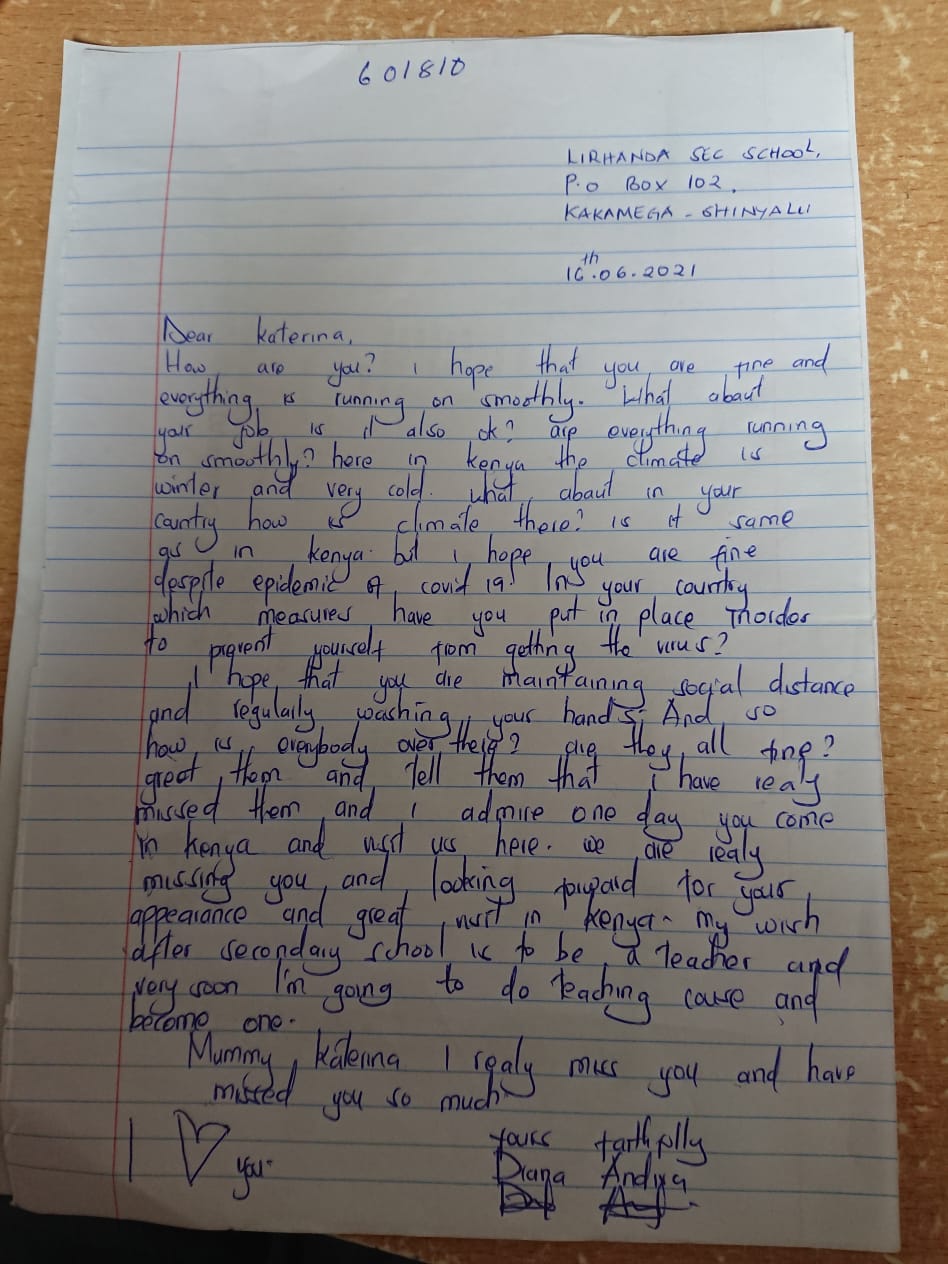 601810
LIRHANDA SEC SCHOOL,
P.O BOX 102,
KAKAMEGA - SHINYALU
th
16.06.2021
Dear Katerina,
How are you? i hope that you are fine and
everything is running on smoothly. What about
your job is it also ok? are everything running
on smoothly? here in kenya the climate is
winter and very cold. what about in your
country how is climate there? is it same
as in kenya. but i hope you are fine
despite epidemic of covid 19! In your country
which measures have you put in place inorder
to prevent yourself from getting the virus?
I hope that you are maintaining social distance
and regularly washing your hands; And so
how is everybody over there? are they all fine?
great them and tell them that i have realy
missed them and i admire one day you come
in Kenya and visit us here. we are realy
missing you and looking forward for your
appearance and great visit in Kenya. my wish
after secondary school is to be a teacher and
very soon I'm going to do teaching course and
become one.
Mummy Katerina I realy miss you and have
missed you so much
I ♡ you.
yours faithfully
Diana Andiya